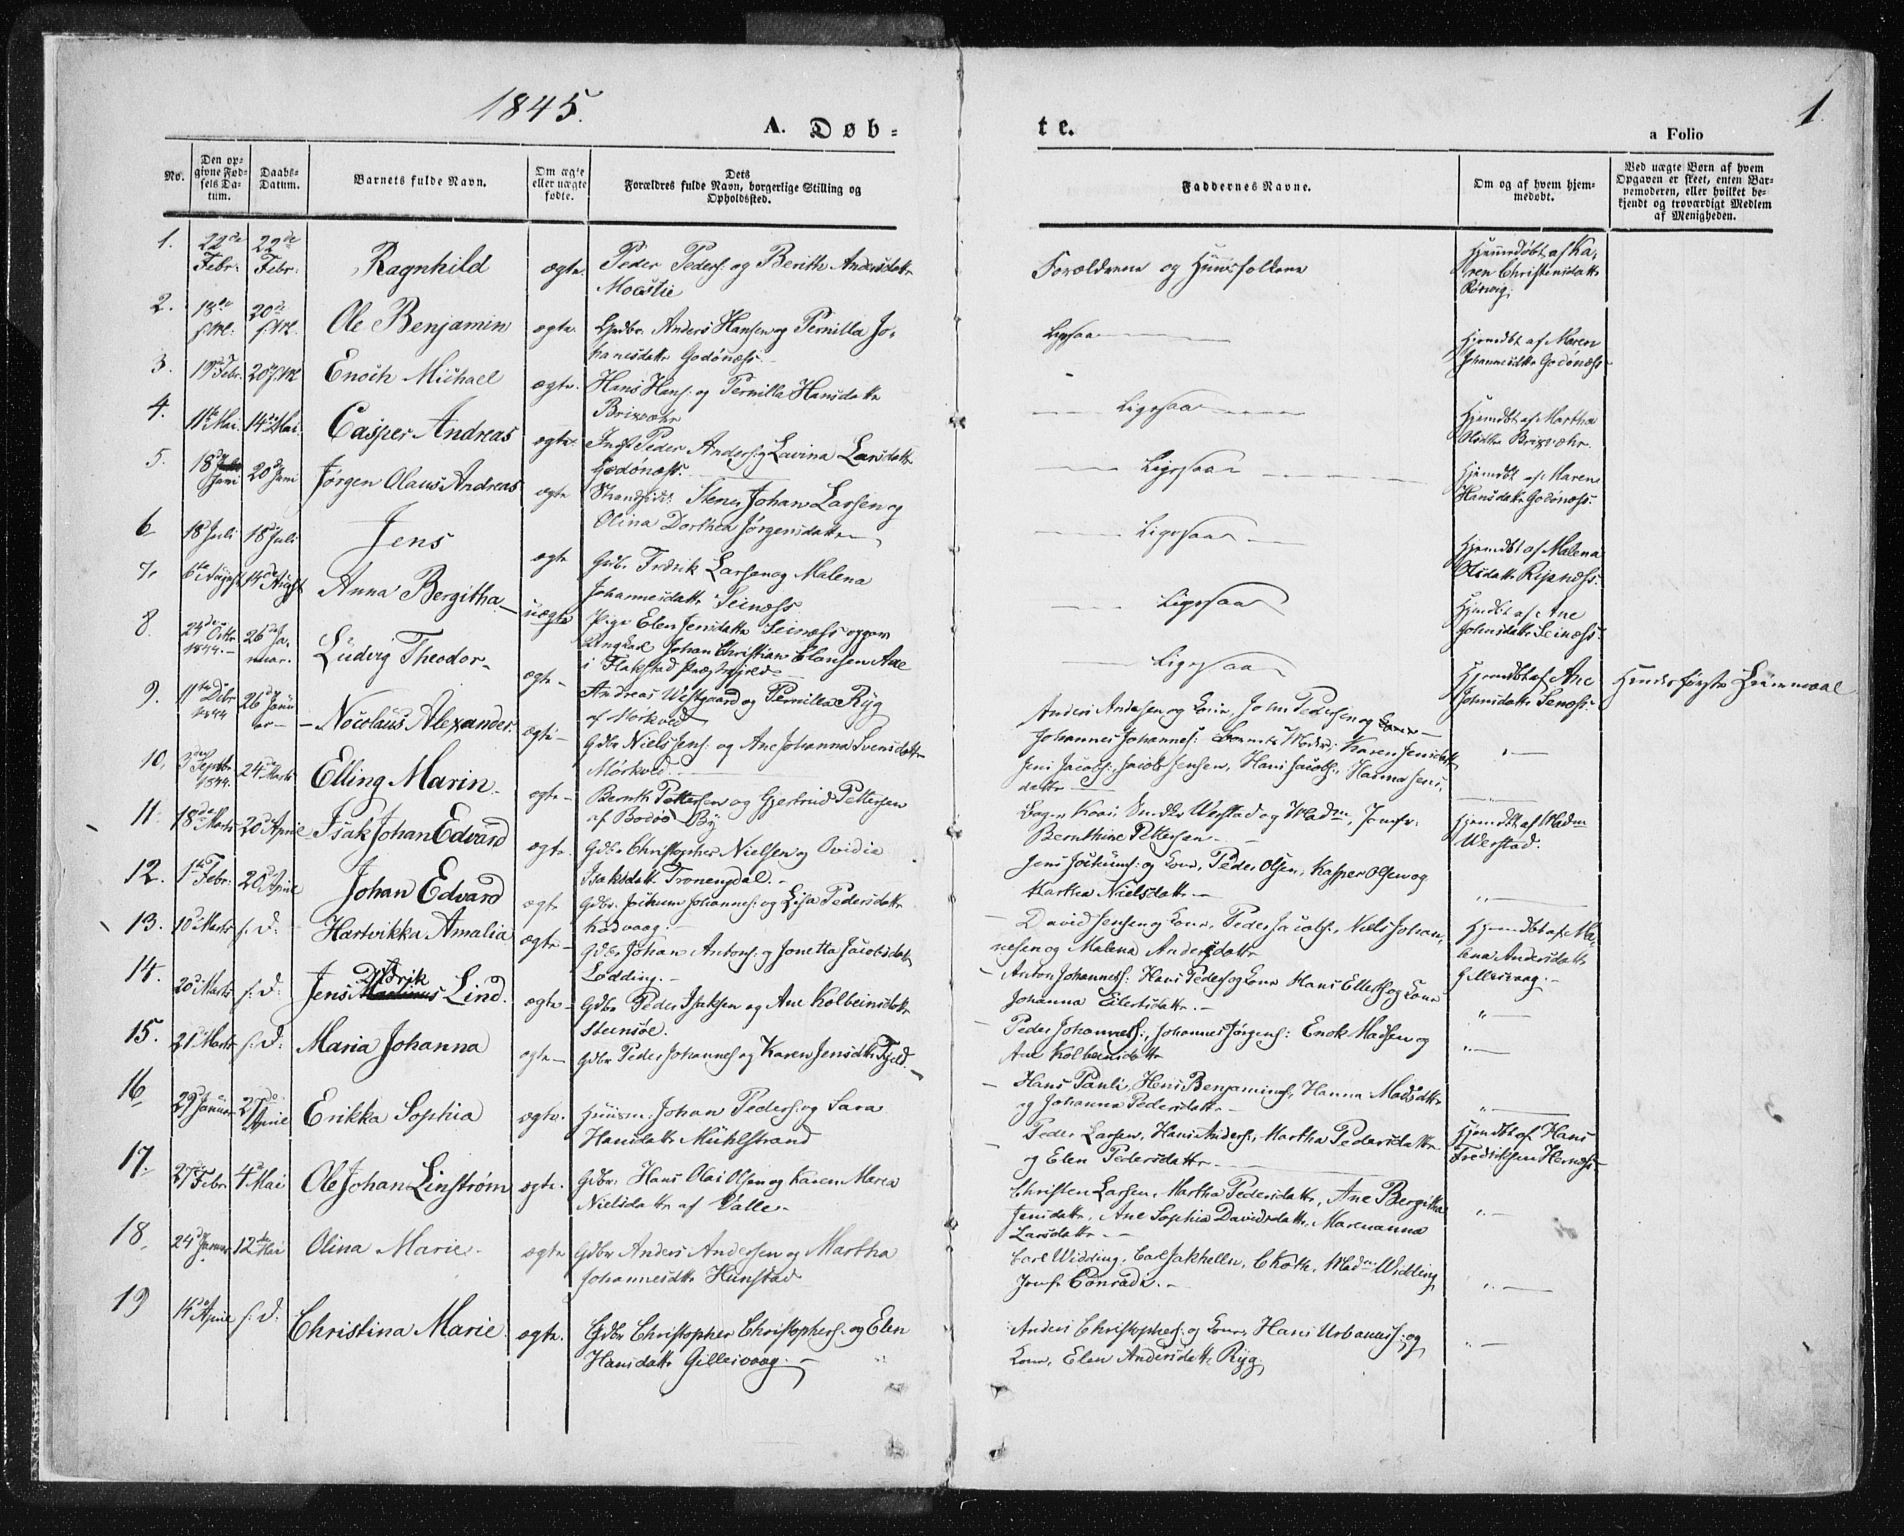 1845.
1.
A. Døb-
te.
a Folio
No.
Den op-
givne Fød-
sels Da-
tum.
Daabs-
Datum.
Barnets fulde Navn.
Om ægte
eller uægte
fødte.
Dets
Forældres fulde Navn, borgerlige Stilling og
Opholdssted.
Faddernes Navne.
Om og af hvem hjem-
medøbt.
Ved uægte Børn af hvem
Opgaven er skeet, enten Bar-
nemoderen, eller hvilket be-
kjendt og troværdigt Medlem
af Menigheden.
1.
22de
Febr:
22de
Febr:
Ragnhild
ægte.
Peder Peders: og Berith Andersdattr
Forældrene og Huusfolkene
Hjemmdøbt af Ka-
ren Christensdattr
2.
18de
20de
Ole Benjamin
ægte.
Gdbr. Anders Hansen og Pernilla Jo-
hanesdattr Godønæss.
Ligesaa
Hjemdbt af Maren
Johannesdttr Godønæss.
3.
19d Febr.
20d
Enoch Michael
ægte.
Hans Hans: og Pernilla Hansdattr
Brixvæhr
Ligesaa
Hjemdbt af Martha
Olsdttr Brixvæhr.
4.
11te Mai.
14de Mai.
Casper Andreas
ægte.
Inds: Peder Anders: og Lavina Larsdattr
Godønæss.
Ligesaa
Hjemdbt af Maren
Hansdattr Godønæss.
5.
18d
Juni
20d Juni
Jørgen Olaus Andreas
ægte
Strandsidd: Stener Johan Larsen og
Olina Dorthea Jørgensdattr
Ligesaa
Hjemdbt af Malena
Olsdattr Ripnæss.
6
18d Juli
18d Juli
Jens
ægte
Gdbr. Fredrik Larsen og Malena
Johannesdattr Seinæss.
Ligesaa
Hjemdbt af Ane
Johnsdattr Seinæss.
7.
6te August
14de August
Anna Bergitha
uægte
Pige Elen Jensdattr Seinæss og
Ungkarl Johan Christian Clausen Aae
i Flakstad Præstegjeld
Ligesaa
Hjemdbt af Ane
Johnsdattr Senæss.
Hendes første Leiermaal
8.
24de Octbr
1844.
26de Ja-
nuar.
Ludvig Theodor
ægte
Andreas Westgaard og Pernilla Ryg
af Mörkved
Anders Andersen og Kone, John Pedersen og Kone
9.
11te Dcbr
1844
26d Janu
ar
Nocolaus Alexander
ægte
Gdbr Niels Jens: og Ane Johanna Svensdattr
Mörkved.
Johannes Johannes: Moder, Karen Jensdattr
10.
3die Septbr
1844.
24de Marts
Elling Marin.
ægte
Bernth Pettersen og Gjertrud Pettersen
af Bodøe By
Jens Jacobs:, Jacob Jensen, Hans Jacobs:, Hanna Jens-
dattr
11.
18de Marts
20d Aprie
Isak Johan Edvard
ægte.
Gdbr Christopher Nielsen og Ovidia
Isaksdatt. Tronengdal.
Werstad og Madm, Jomfr:
Bernthine Pettersen
Hjemdbt af Madm
Werstad.
12.
1te Febr.
20d Aprie
Johan Edvard
ægte
Gdbr. Jochum Johannes: og Lisa Pedersdattr
Kødvaag.
Jens Jochums: og Kone, Peder Olsen, Kasper Olsen og
Martha Nielsdattr
13.
10d Marts
s. D.
Hartvikka Amalia
ægte
Gdbr Johan Antons: og Jonetta Jacobsdatt
Lødding.
David Jensen og Kone, Peder Jacobs:, Niels Johan-
nesen og Malena Andersdattr
Hjemdbt af Ma-
lena Andersdattr
Gillesvaag.
14.
20d Marts
s. D.
Jens Didrik Lind.
ægte
Gdbr Peder Isaksen og Ane Kolbeinsdattr
Steensöe.
Anton Johannes: Hans Peders: og Kone Hans Ellerts: og Kone
Johanna Eilertsdattr.
15.
21d Marts
s. D.
Maria Johanna
ægte
Gdbr Peder Johannes: og Karen Jensdttr Fjeld.
Peder Johannes:, Johannes Jørgens: Enok Madsen og
Ane Kolbeinsdattr
16
29d Januar
27d
Aprie
Erikka Sophia
ægte.
Huusm. Johan Peders: og Sara
Hansdattr Mühlstrand
Hans Pauli, Hans Benjamins:, Hanna Madsdttr
og Johanna Pedersdattr
17.
27d Febr.
4d Mai
Ole Johan Linstrøm
ægte.
Gdbr. Hans Olai Olsen og Karen Maria
Nielsdattr af Valle.
Peder Larsen, Hans Anders:, Martha Pedersdattr
og Elen Pedersdattr.
Hjemdbt af Hans
Fredriksen Hernæss
18.
24d Januar
12te Mai
Olina Marie.
ægte
Gdbr Anders Andersen og Martha
Johannesdttr Hunstad
Christen Larsen, Martha Pedersdattr, Ane Bergitha
Jensdattr, Ane Sophia Davidsdattr, Marenanna
Larsdattr
19
14d Aprie
s. D.
Christina Marie
ægte.
Gdbr Christopher Christophers: og Elen
Hansdattr Gillesvaag.
Carl Widding, Carl Jakhelln, C Koth, Madm Widding
Jomfr Conradi.
Anders Christophers: og Kone, Hans Urbanuss: og
Kone, Elen Andersdattr Ryg